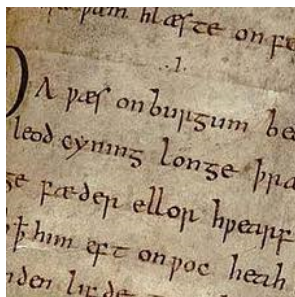 þam hlæste onfe
.·.I.
ÐA ƿæs onburgum beo
leod cyning longe þra
ge fæder ellor hƿearf
ꝥ him eft onƿoc heah
nden lifde